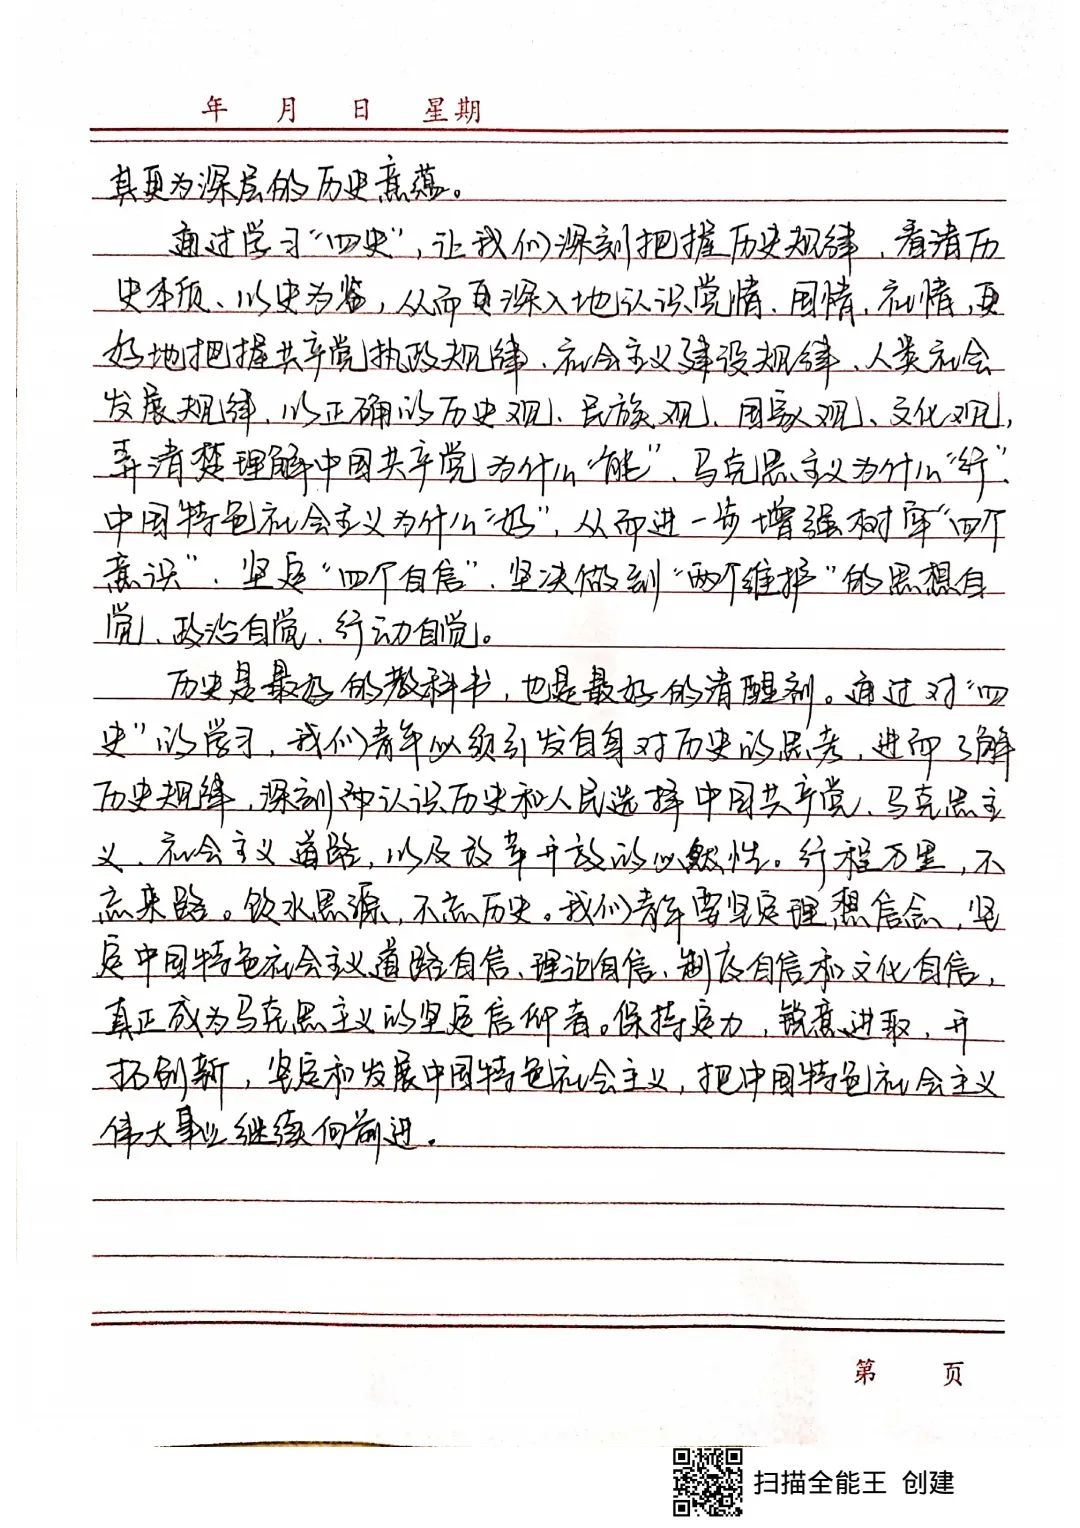 年 月 日 星期
其更为深层的历史意蕴。
通过学习“四史”,让我们深刻把握历史规律、看清历
史本质、以史为鉴,从而更深入地认识党情、国情、社情,更
好地把握共产党执政规律、社会主义建设规律、人类社会
发展规律、以正确的历史观、民族观、国家观、文化观,
弄清楚理解中国共产党为什么“能”、马克思主义为什么“行”、
中国特色社会主义为什么“好”,从而进一步增强树牢“四个
意识”、坚定“四个自信”、坚决做到“两个维护”的思想自
觉、政治自觉、行动自觉。
历史是最好的教科书,也是最好的清醒剂。通过对“四
史”的学习,我们青年必须引发自身对历史的思考,进而了解
历史规律,深刻认识历史和人民选择中国共产党、马克思主
义、社会主义道路,以及改革开放的必然性。行程万里,不
忘来路。饮水思源,不忘历史。我们青年要坚定理想信念,坚
定中国特色社会主义道路自信、理论自信、制度自信和文化自信,
真正成为马克思主义的坚定信仰者。保持定力,锐意进取,开
拓创新,坚定和发展中国特色社会主义,把中国特色社会主义
伟大事业继续向前进。
第 页
扫描全能王 创建